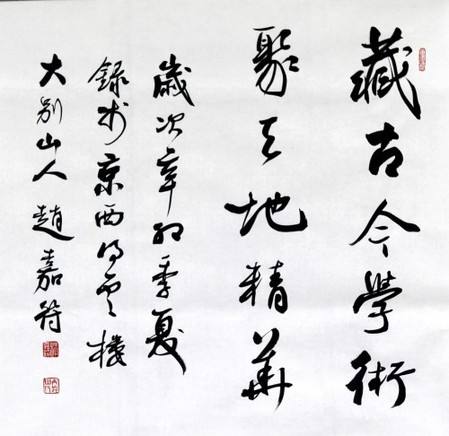 藏古今學術
聚天地精華
歲次辛卯季夏
錄於京西得雲樓
大别山人趙嘉符